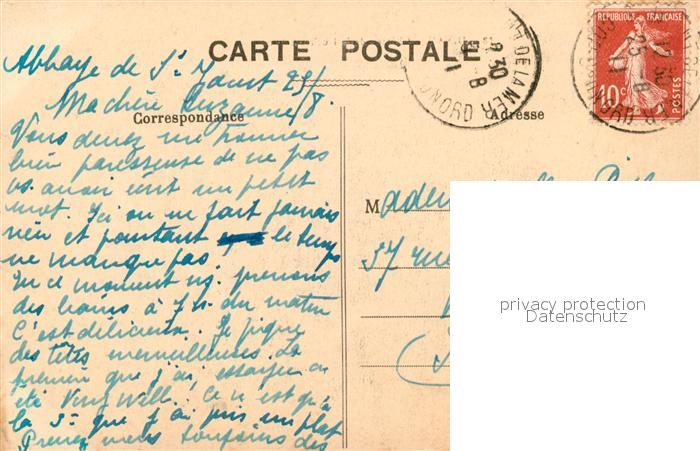 CARTE POSTALE
Correspondance
Adresse
RÉPUBLIQUE FRANÇAISE
10c
POSTES
DE LA MER
12 30
23 - 8
11
Abbaye de St 29/8.
Ma chère Suzanne
Vous devez me trouver
bien paresseuse de ne pas
vs. avoir écrit un petit
mot. Ici on ne fait jamais
rien et pourtant le temps
ne manque pas.
En ce moment ns. prenons
des bains à 7 h. du matin
C'est délicieux. Je pique
des têtes merveilleuses. La
première que j'ai essayée a
été Very Well. Ce n'est qu'à
la 3e que j'ai pris un plat
Prenez vous toujours des
M
37 rue
privacy protection
Datenschutz